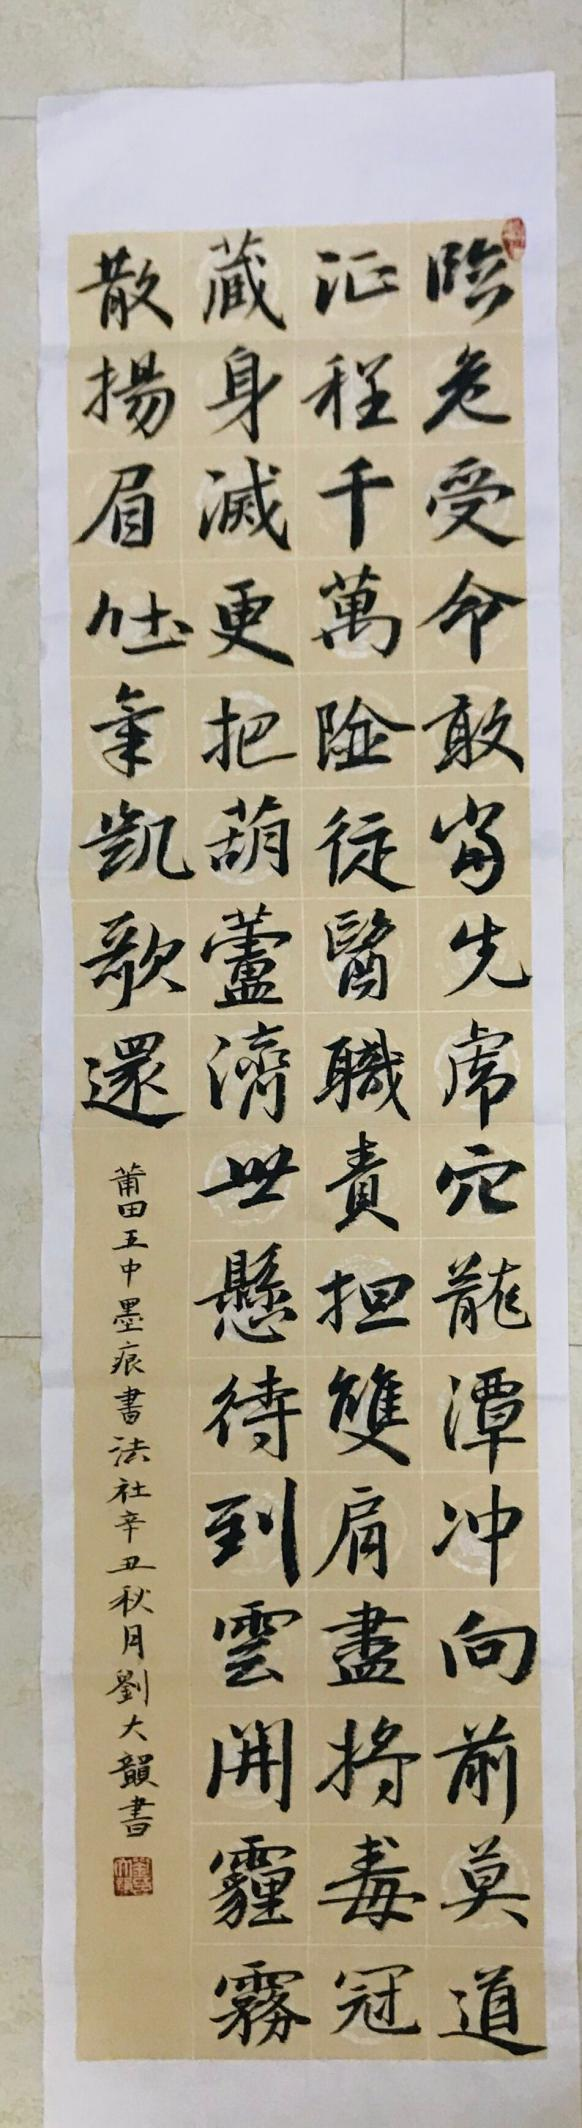 臨危受命敢當先虎穴龍潭冲向前莫道
征程千萬險從醫職責担雙肩盡將毒冠
藏身滅更把葫蘆濟世懸待到雲開霾霧
散揚眉吐氣凱歌還
莆田五中墨痕書法社辛丑秋月劉大韻書